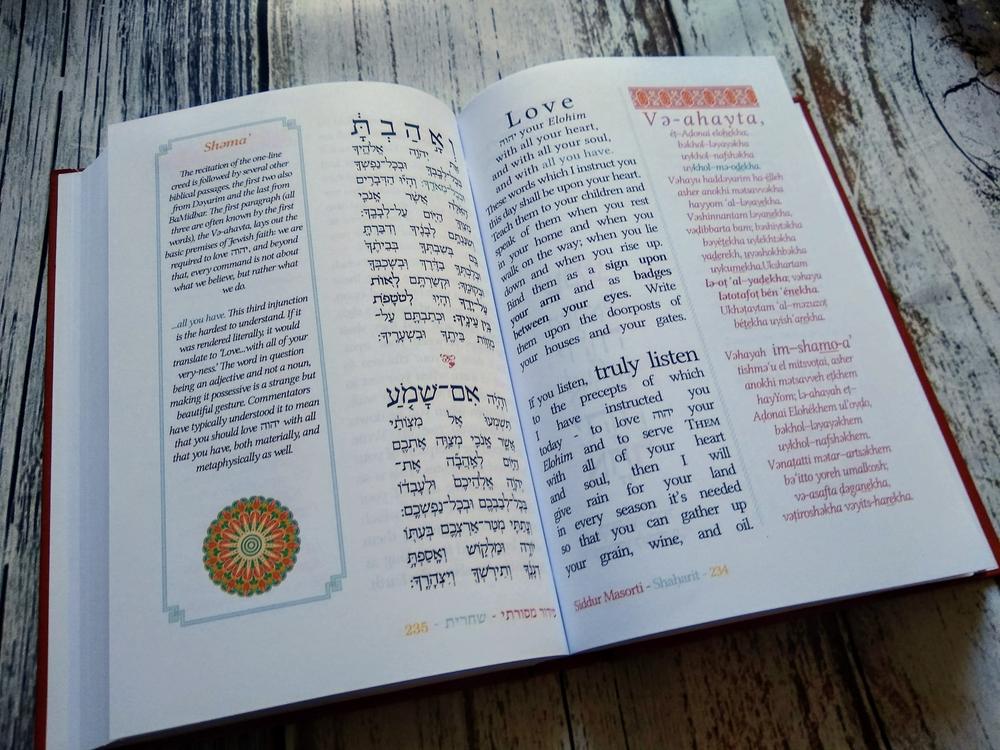 Shəma'
The recitation of the one-line
creed is followed by several other
biblical passages, the first two also
from Dəvarim and the last from
BaMidbar. The first paragraph (all
three are often known by the first
words), the Və-ahavta, lays out the
basic premises of Jewish faith: we are
required to love יהוה, and beyond
that, every command is not about
what we believe, but rather what
we do.
...all you have. This third injunction
is the hardest to understand. If it
was rendered literally, it would
translate to 'Love...with all of your
very-ness.' The word in question
being an adjective and not a noun,
making it possessive is a strange but
beautiful gesture. Commentators
have typically understood it to mean
that you should love יהוה with all
that you have, both materially, and
metaphysically as well.
וְאָהַבְתָּ
אֵת יְהוָה אֱלֹהֶיךָ
בְּכׇל־לְבָבְךָ וּבְכׇל־נַפְשְׁךָ
וּבְכׇל־מְאֹדֶךָ: וְהָיוּ הַדְּבָרִים
הָאֵלֶּה אֲשֶׁר אָנֹכִי
מְצַוְּךָ הַיּוֹם עַל־לְבָבֶךָ:
וְשִׁנַּנְתָּם לְבָנֶיךָ וְדִבַּרְתָּ
בָּם בְּשִׁבְתְּךָ בְּבֵיתֶךָ
וּבְלֶכְתְּךָ בַדֶּרֶךְ וּבְשׇׁכְבְּךָ
וּבְקוּמֶךָ: וּקְשַׁרְתָּם לְאוֹת
עַל־יָדֶךָ וְהָיוּ לְטֹטָפֹת
בֵּין עֵינֶיךָ: וּכְתַבְתָּם עַל־
מְזוּזֹת בֵּיתֶךָ וּבִשְׁעָרֶיךָ:
וְהָיָה אִם־שָׁמֹעַ
תִּשְׁמְעוּ אֶל מִצְוֺתַי
אֲשֶׁר אָנֹכִי מְצַוֶּה אֶתְכֶם
הַיּוֹם לְאַהֲבָה אֶת־
יְהוָה אֱלֹהֵיכֶם וּלְעׇבְדוֹ
בְּכׇל־לְבַבְכֶם וּבְכׇל־נַפְשְׁכֶם:
וְנָתַתִּי מְטַר־אַרְצְכֶם בְּעִתּוֹ
יוֹרֶה וּמַלְקוֹשׁ וְאָסַפְתָּ
דְגָנֶךָ וְתִירֹשְׁךָ וְיִצְהָרֶךָ:
סידור מסורתי - שחרית - 235
Love
יהוה your Elohim
with all your heart,
and with all your soul,
and with all you have.
These words which I instruct you
this day shall be upon your heart.
Teach them to your children and
speak of them when you rest
in your home and when you
walk on the way; when you lie
down and when you rise up.
Bind them as a sign upon
your arm and as badges
between your eyes. Write
them upon the doorposts of
your houses and your gates.
If you listen, truly listen
to the precepts of which
I have instructed you
today - to love יהוה your
Elohim and to serve THEM
with all of your heart
and soul, then I will
give rain for your land
in every season it's needed
so that you can gather up
your grain, wine, and oil.
Və-ahavta,
ėt-Aḍonai elohekha,
bəkhol-ləvavəkha
uvkhol-nafshəkha
uvkhol-mə-oḍekha.
Vəhayu haddəvarim ha-ėlleh
asher anokhi mətsavvəkha
hayyom 'al-ləvavekha.
Vəshinnantam ləvanekha,
vədibbarta bam; bəshivtəkha
bəvėtekha uvlekhtəkha
vaderekh, uvəshokhbəkha
uvkumekha.Ukshartam
lə-ot 'al-yadekha; vəhayu
lətotafot bėn 'ėnekha.
Ukhətavtam 'al-məzuzot
bėtekha uvish'arekha.
Vəhayah im–shamo-a'
tishmə'u el mitsvotai, asher
anokhi mətsavveh etkhem
hayYom; lə-ahavah et–
Aḍonai Elohėkhem ul'ovdo,
bəkhol–ləvavəkhem
uvkhol–nafshəkhem.
Vənatatti mətar–artsəkhem
bə'itto yoreh umalkosh;
və-asafta dəganekha,
vətiroshəkha vəyits-harekha.
Siddur Masorti - Shaḥarit - 234